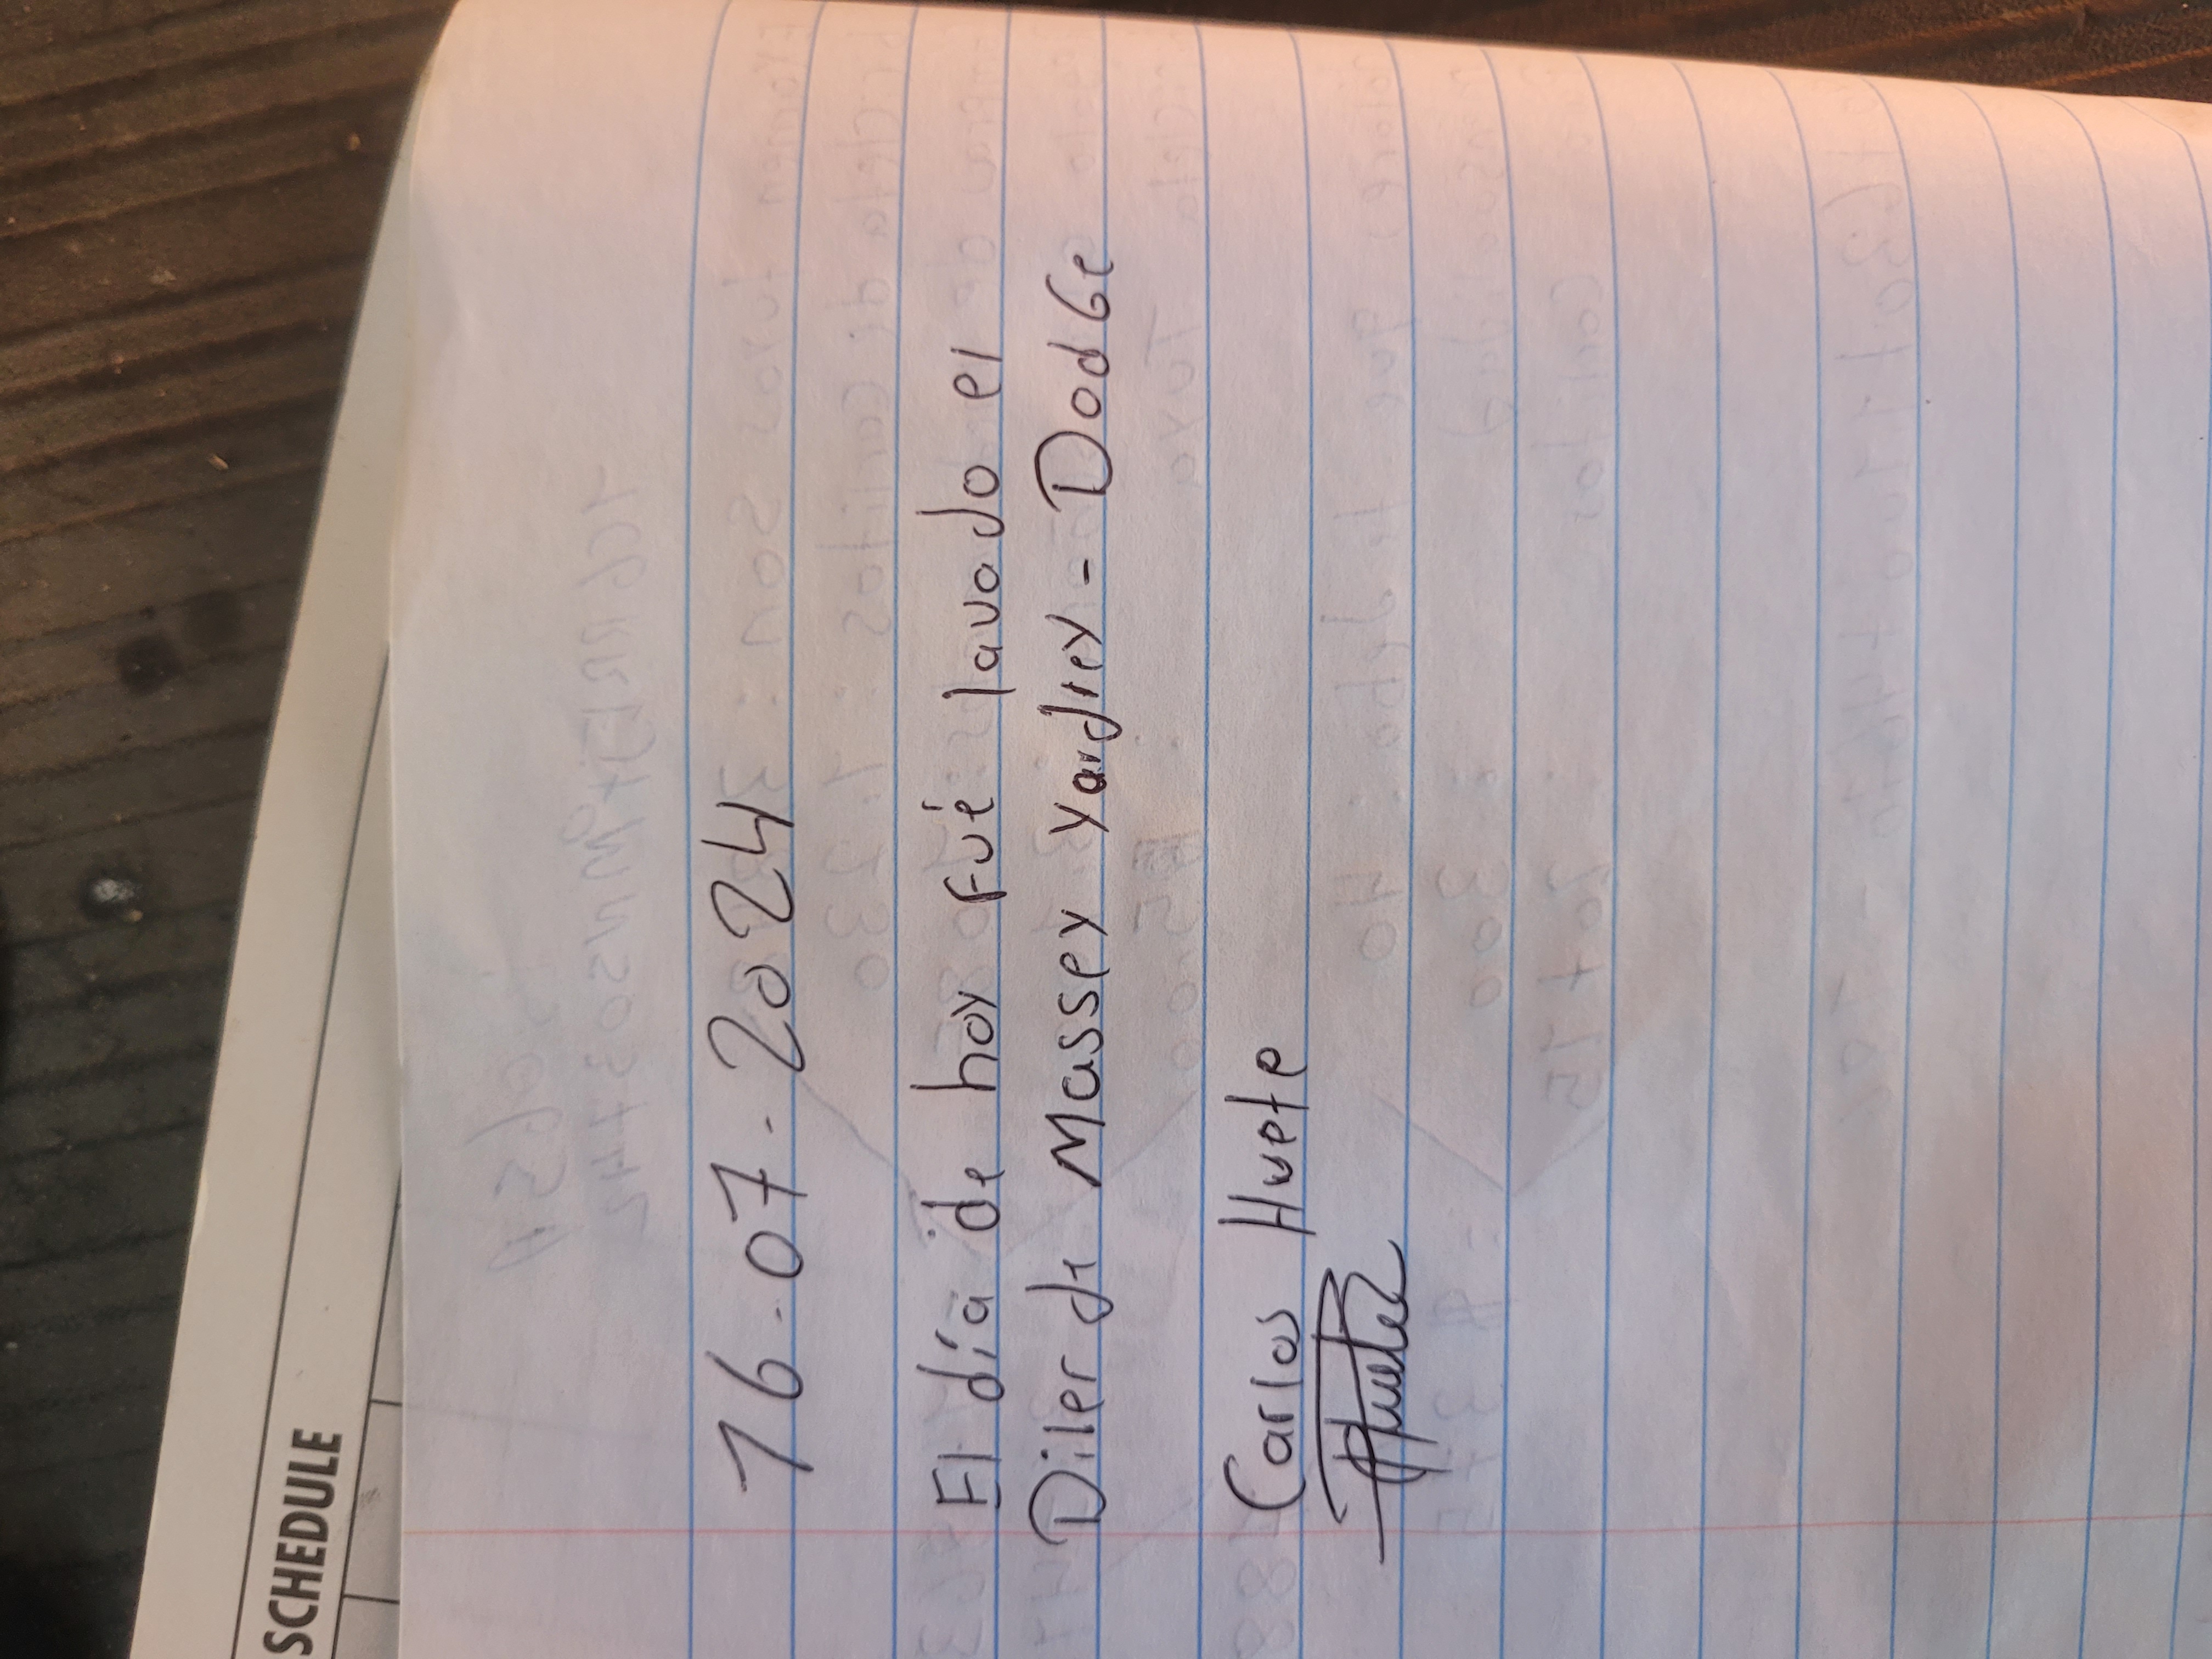 SCHEDULE
16-07-2024
El día de hoy fué lavado el
Diler de Massey Yardley - Dodge
Carlos Huete